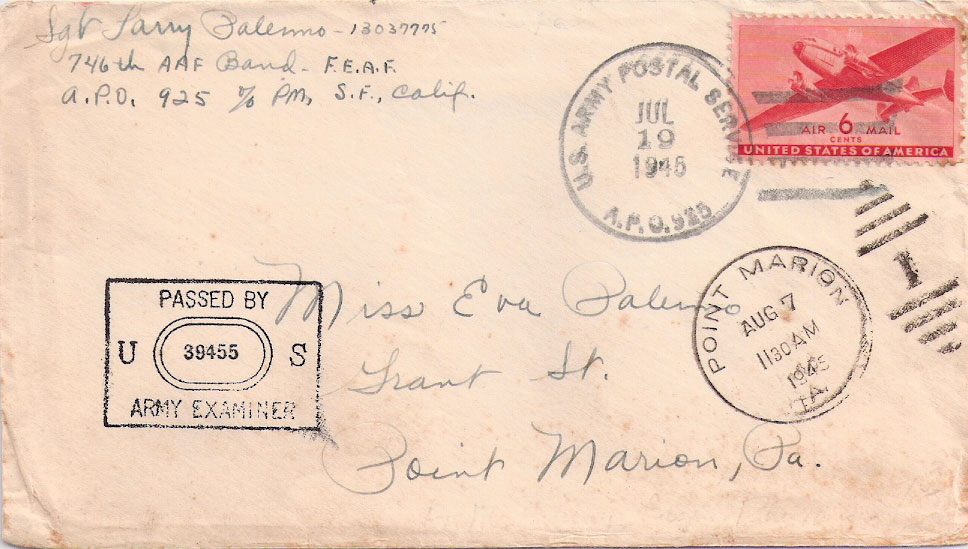 Sgt Larry Palermo - 13037775
746th AAF Band - F.E.A.F.
A.P.O. 925 c/o PM, S.F., Calif.
U.S. ARMY POSTAL SERVICE
JUL
19
1945
A.P.O. 925
AIR 6 MAIL
CENTS
UNITED STATES OF AMERICA
1
POINT MARION
AUG 7
1130 AM
1945
PASSED BY
U 39455 S
ARMY EXAMINER
Miss Eva Palermo
Grant St.
Point Marion, Pa.